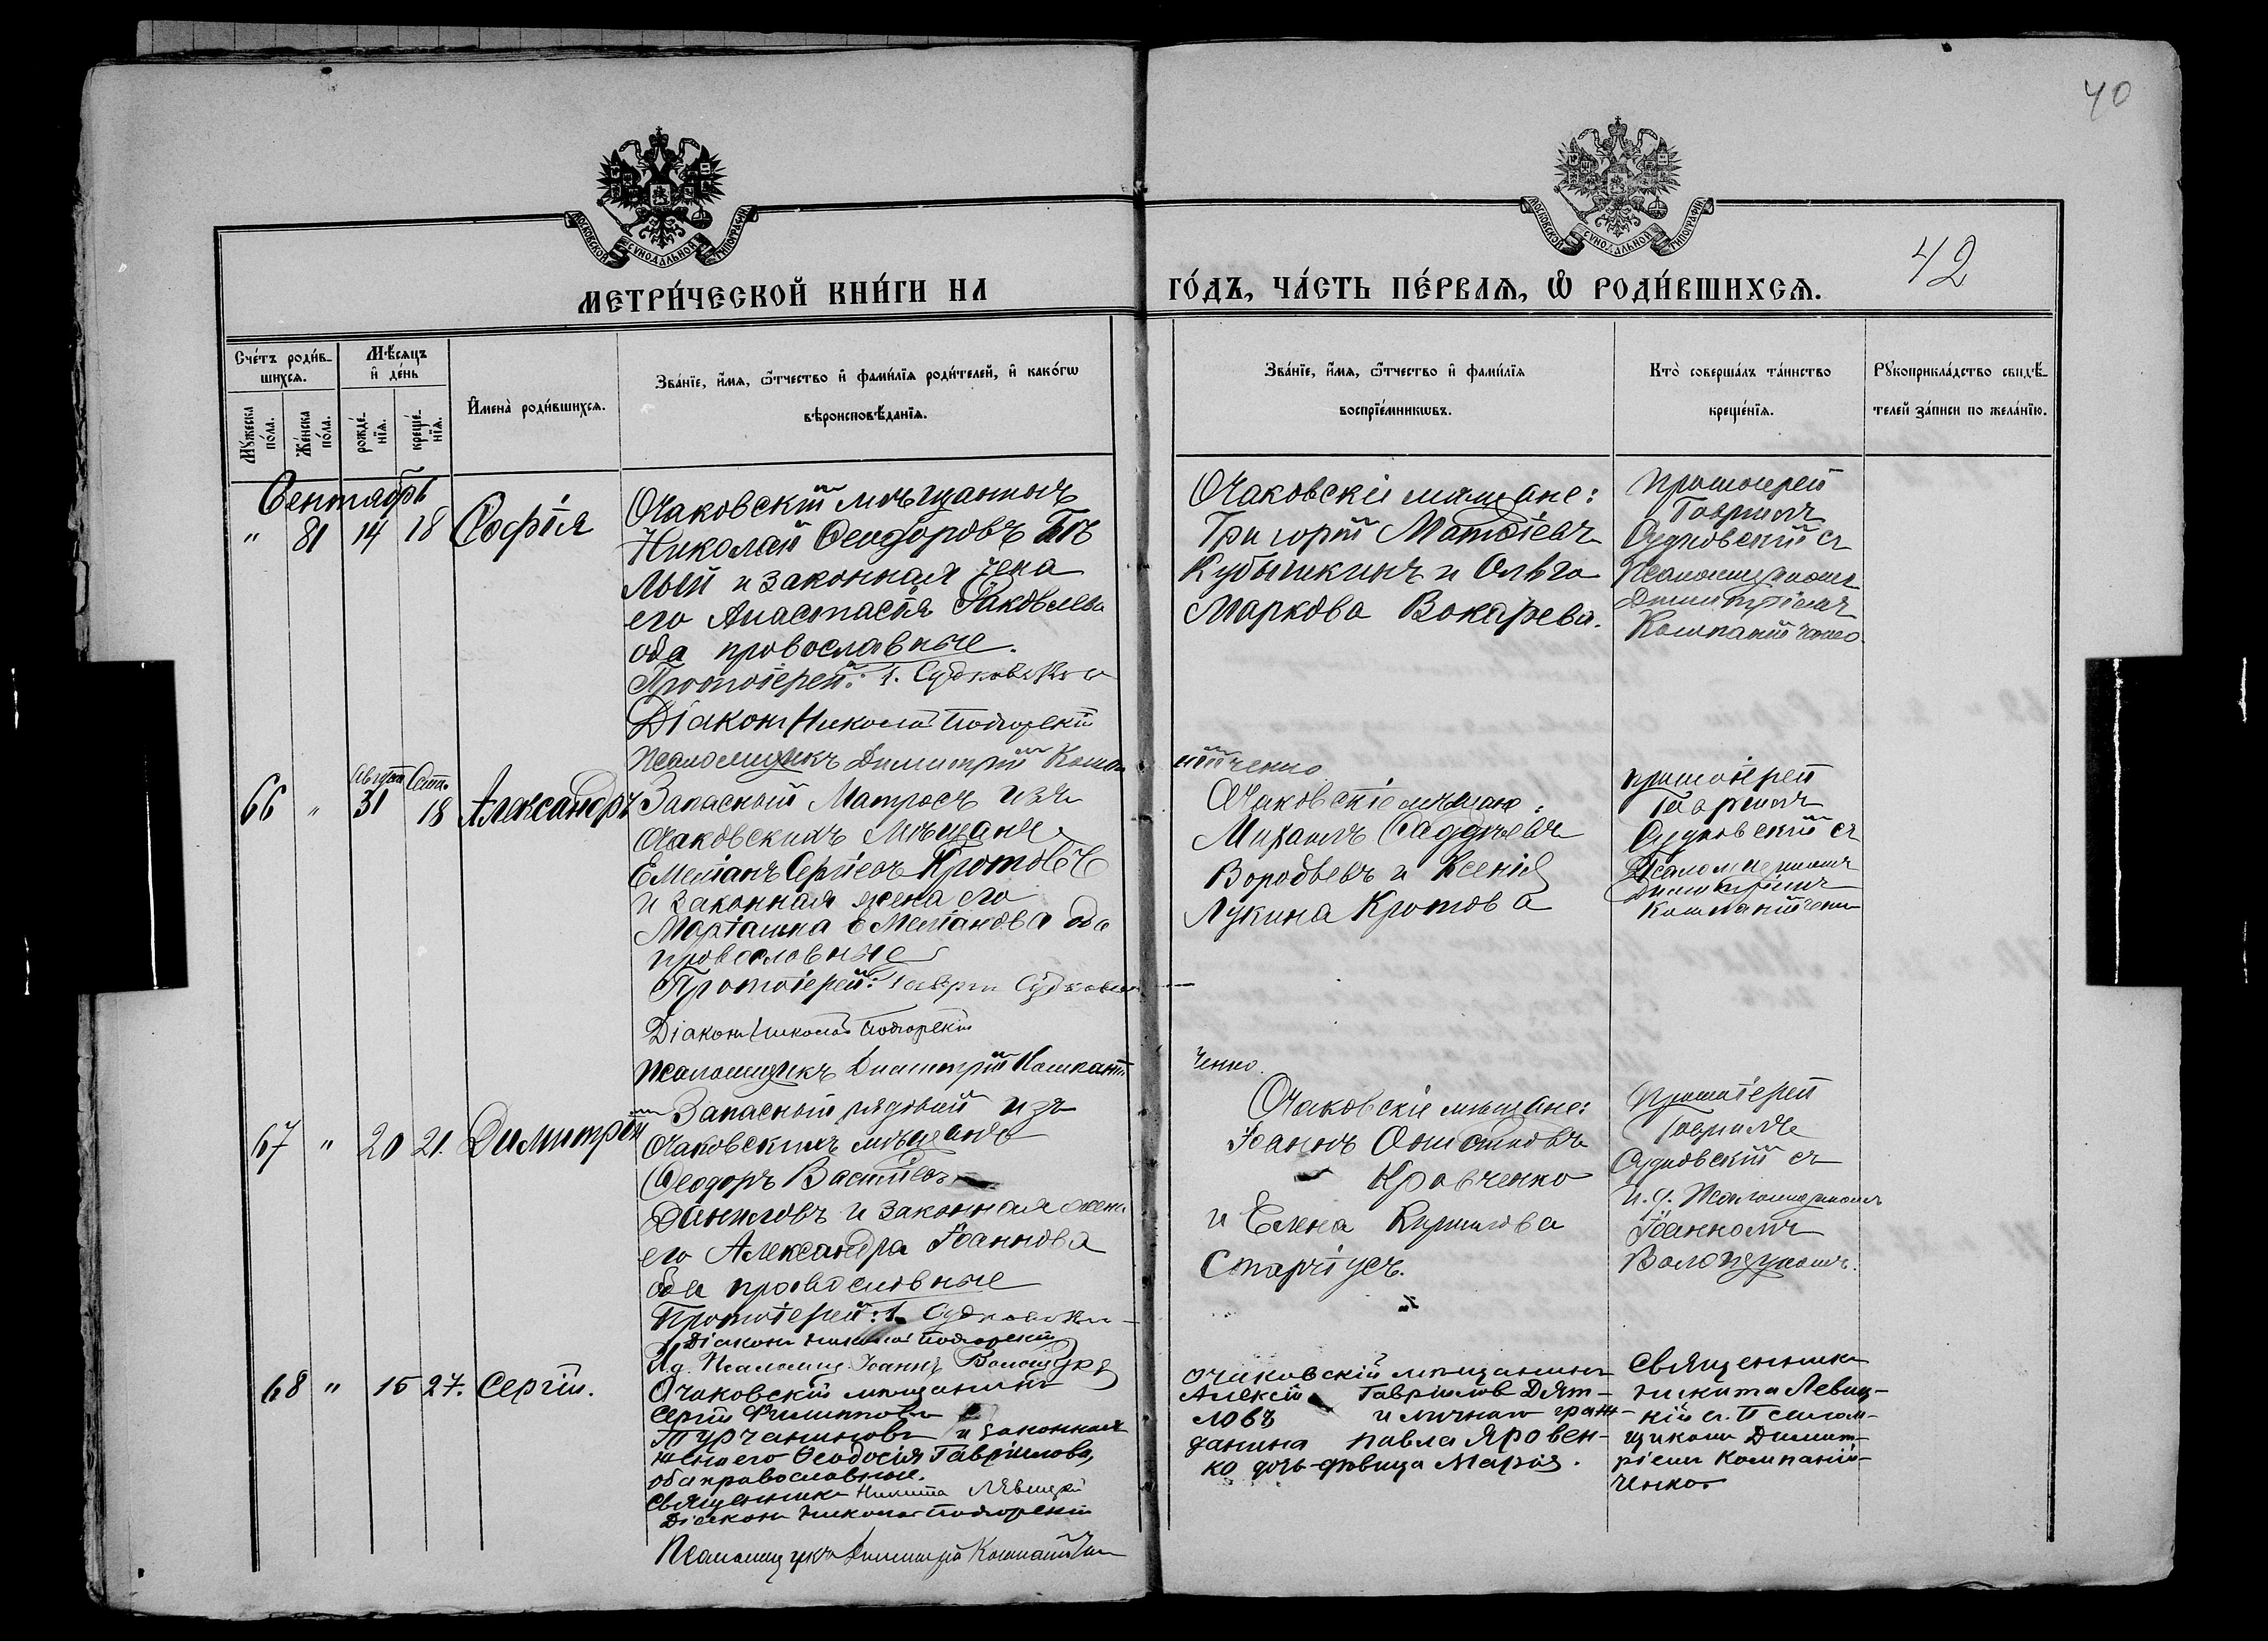 40
МОСКОВСКОЙ СУНОДАЛЬНОЙ ТИПОГРАФІИ
МОСКОВСКОЙ СУНОДАЛЬНОЙ ТИПОГРАФІИ
42
МЕТРИ́ЧЕСКОЙ КНИ́ГИ НА
ГО́ДЪ, ЧА́СТЬ ПЕ́РВАЯ, Ѽ РОДИ́ВШИХСЯ.
Сче́тъ роди́в-
шихся.
Мѣ́сяцъ
и҆ де́нь
И҆мена̀ роди́вшихся.
Зва́нїе, и҆́мя, ѻ҆́тчество и҆ фами́лїя роди́телей, и҆ како́гѡ
вѣроисповѣ́данїя.
Му́жеска
по́ла.
Же́нска
по́ла.
рожде́-
нїя.
креще́-
нїя.
Зва́нїе, и҆́мя, ѻ҆́тчество и҆ фами́лїя
воспрїе́мникѡвъ.
Кто̀ соверша́лъ та́инство
креще́нїя.
Рꙋкоприкла́дство свидѣ́-
телей за́писи по жела́нїю.
Сентябрь
" 81 14 18 Софія
Очаковскій мѣщанинъ
Николай Ѳеодоровъ Бѣ
лый и законная жена
его Анастасія Яковлева
оба православные.
Протоіерей: Г. Судковскій
Діаконъ Николай Подгорскій
Псаломщикъ Димитрій Компа
Очаковскіе мѣщане:
Григорій Матѳіевъ
Кубышкинъ и Ольга
Маркова Вокарева.
нійченко
Протоіерей
Гавріилъ
Судковскій съ
Псаломщикомъ
Димитріемъ
Компанійченко.
66 " Августа 31 Сент. 18 Александръ
Запасный Матросъ изъ
Очаковскихъ Мѣщанъ
Емеліанъ Сергіевъ Кротовъ
и законная жена его
Маріамна Емеліанова оба
православные
Протоіерей: Гавріилъ Судковскій
Діаконъ Николай Подгорскій
Псаломщикъ Димитрій Компаній
Очаковскіе мѣщане:
Михаилъ Ѳаддѣевъ
Воробьевъ и Ксенія
Лукина Кротова
ченко.
Протоіерей
Гавріилъ
Судковскій съ
Псаломщикомъ
Димитріемъ
Компанійченко
67 " 20 21. Димитрій
Запасный рядовый изъ
Очаковскихъ мѣщанъ
Ѳеодоръ Васильевъ
Даниловъ и законная жена
его Александра Іоаннова
оба православные
Протоіерей: Г. Судковскій
Діаконъ Николай Подгорскій
И.д. Псаломщ. Іоаннъ Волощукъ
Очаковскіе мѣщане:
Іоаннъ
Кравченко
и Елена Кириллова
Старчіусъ.
Протоіерей
Гавріилъ
Судковскій съ
и. д. Псаломщикомъ
Іоанномъ
Волощукомъ.
68 " 15 27. Сергій.
Очаковскій мѣщанинъ
Сергій Филипповъ
Турчаниновъ и законная
жена его Ѳеодосія Гавріилова,
оба православные.
Священникъ Никита Левицкій
Діаконъ Николай Подгорскій
Псаломщикъ Димитрій Компанійченко
Очаковскій мѣщанинъ
Алексій Гавріиловъ Дят-
ловъ и личнаго граж-
данина Павла Яровен-
ко дочь-дѣвица Марія.
Священникъ
Никита Левиц-
кій съ Псалом-
щикомъ Димит-
ріемъ Компаній-
ченко.